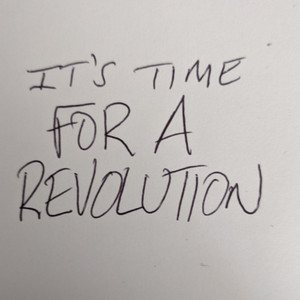 IT'S TIME
FOR A
REVOLUTION